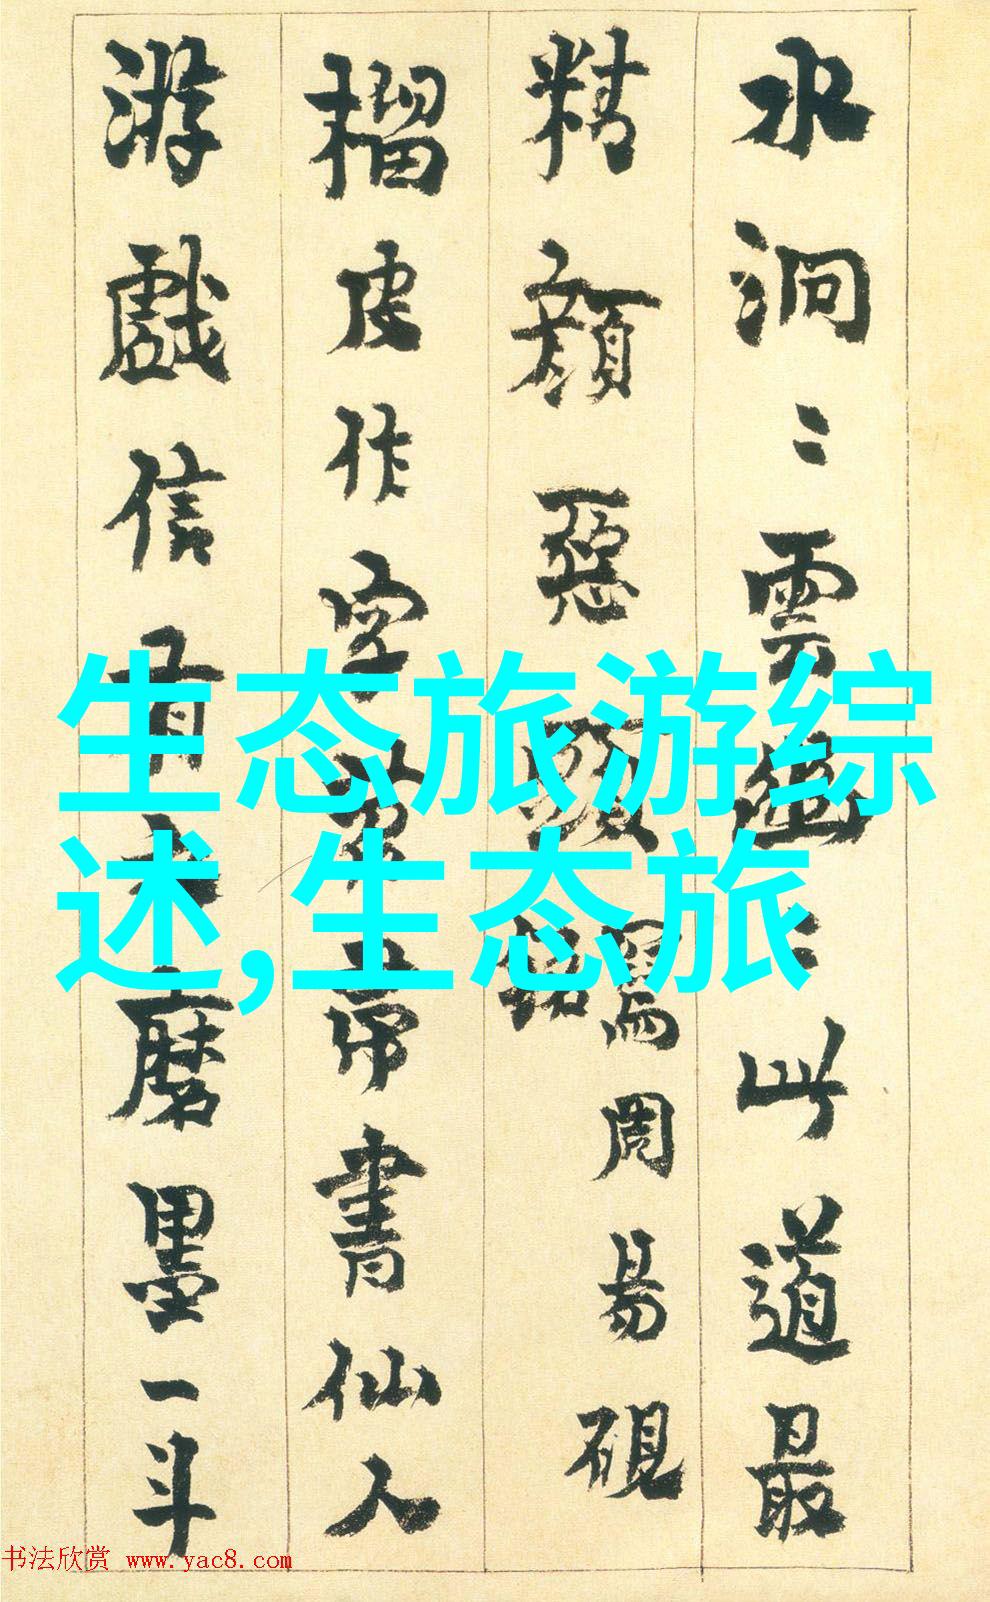 水洞〻雲〻此道最
精顏惡寫周易硯
榴皮作字帚書仙人
游戲信有磨墨一斗
生态旅游综
述,生态旅
书法欣赏 www.yac8.com